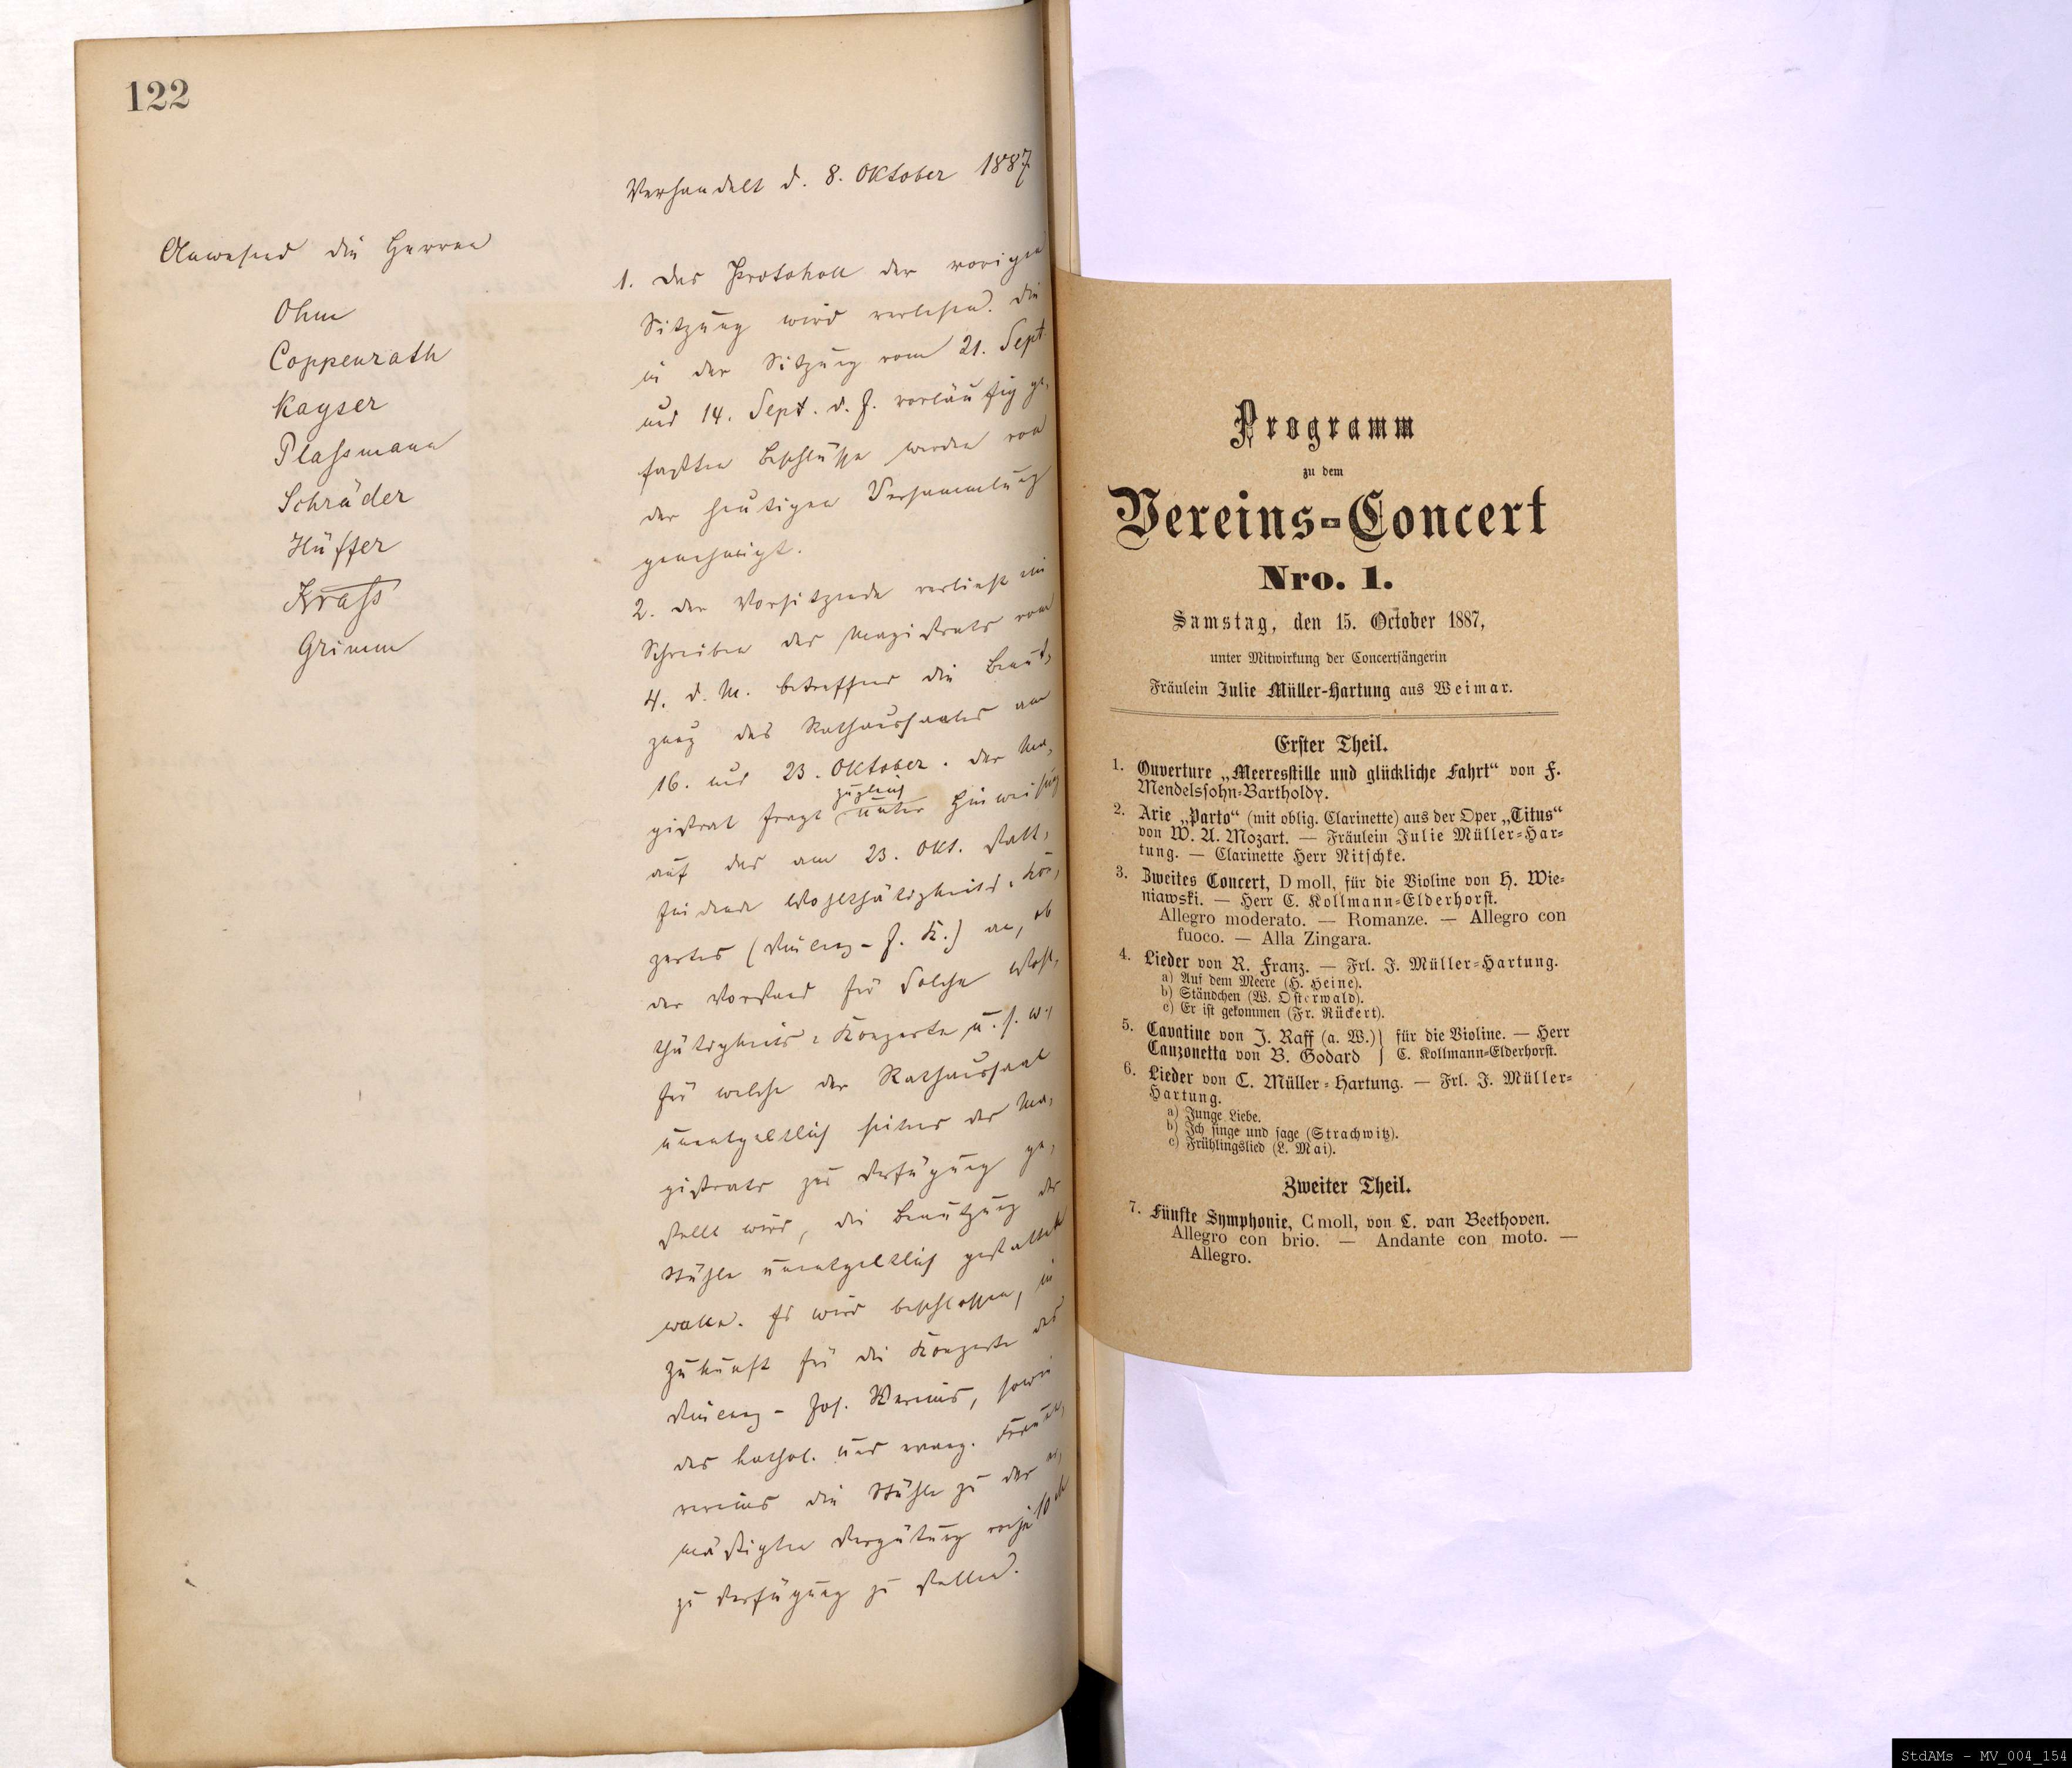 122
Verhandelt d. 8. Oktober 1887
Anwesend die Herren
Ohm
Coppenrath
Kayser
Plaßmann
Schräder
Hüffer
Kraß
Grimm
1. Das Protokoll der vorigen
Sitzung wird verlesen. Die
in der Sitzung vom 21. Sept.
und 14. Sept. d. J. vorläufig ge-
faßten Beschlüsse werden von
der heutigen Versammlung
genehmigt.
2. Der Vorsitzende verließt ein
Schreiben des Magistrats vom
4. d. M. betreffend die Benut-
zung des Rathaussaales am
16. und 23. Oktober. Der Ma-
zugleich
gistrat fragt unter Hinweisung
auf das am 23. Okt. statt-
findende Wohlthätigkeits-Kon-
zertes (Vincenz-J. K.) an, ob
der Vorstand für solche Wohl-
thätigkeits-Konzerte u. s. w.,
für welche der Rathaussaal
unentgeltlich seitens des Ma-
gistrats zur Verfügung ge-
stellt wird, die Benutzung der
Stühle unentgeltlich gestatten
wolle. Es wird beschlossen, in
Zukunft für die Konzerte des
Vincenz-Jos. Vereins, sowie
des kathol. und evang. Frauen-
vereins die Stühle zu der er-
mäßigten Vergütung von je 10 M
zu Verfügung zu stellen.
Programm
zu dem
Vereins-Concert
Nro. 1.
Samstag, den 15. October 1887,
unter Mitwirkung der Concertsängerin
Fräulein Julie Müller-Hartung aus Weimar.
Erster Theil.
1. Ouverture „Meeresstille und glückliche Fahrt“ von F.
Mendelssohn-Bartholdy.
2. Arie „Parto“ (mit oblig. Clarinette) aus der Oper „Titus“
von W. A. Mozart. — Fräulein Julie Müller-Har-
tung. — Clarinette Herr Nitschke.
3. Zweites Concert, D moll, für die Violine von H. Wie-
niawski. — Herr C. Kollmann-Elderhorst.
Allegro moderato. — Romanze. — Allegro con
fuoco. — Alla Zingara.
4. Lieder von R. Franz. — Frl. J. Müller-Hartung.
a) Auf dem Meere (H. Heine).
b) Ständchen (W. Osterwald).
c) Er ist gekommen (Fr. Rückert).
5. Cavatine von J. Raff (a. W.) } für die Violine. — Herr
Canzonetta von B. Godard } C. Kollmann-Elderhorst.
6. Lieder von C. Müller-Hartung. — Frl. J. Müller-
Hartung.
a) Junge Liebe.
b) Ich singe und sage (Strachwitz).
c) Frühlingslied (L. Mai).
Zweiter Theil.
7. Fünfte Symphonie, C moll, von L. van Beethoven.
Allegro con brio. — Andante con moto. —
Allegro.
StdAMs - MV_004_154